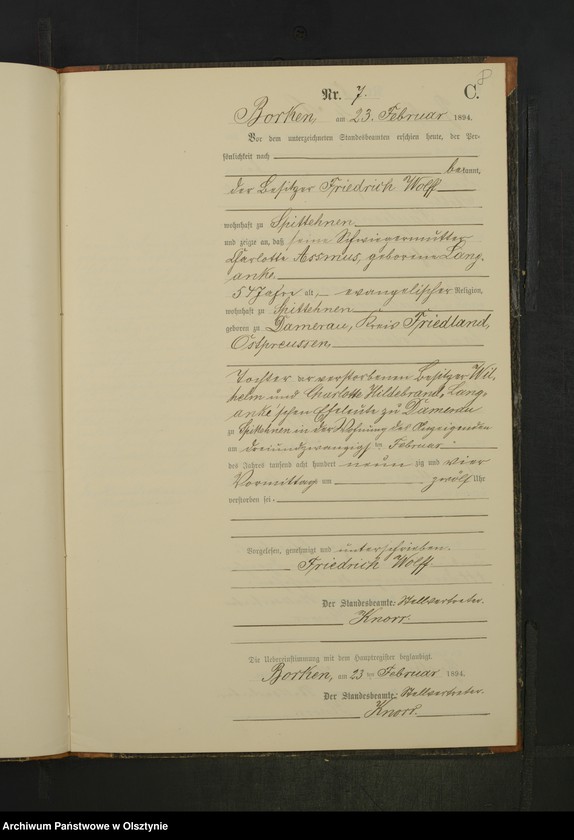 8
Nr. 7. C.
Borken, am 23. Februar 1894.
Vor dem unterzeichneten Standesbeamten erschien heute, der Per-
sönlichkeit nach
bekannt,
der Besitzer Friedrich Wolff
wohnhaft zu Spittehnen
und zeigte an, daß seine Schwiegermutter
Charlotte Assmus, geborene Lang-
anke.
54 Jahre alt, evangelischer Religion,
wohnhaft zu Spittehnen
geboren zu Damerau, Kreis Friedland,
Ostpreussen,
Tochter der verstorbenen Besitzer Wil-
helm und Charlotte Hildebrand, Lang-
anke'schen Eheleute zu Damerau
zu Spittehnen in der Wohnung des Anzeigenden
am dreiundzwanzigsten Februar
des Jahres tausend acht hundert neun zig und vier
Vormittag um zwölf Uhr
verstorben sei.
Vorgelesen, genehmigt und unterschrieben.
Friedrich Wolff
Der Standesbeamte: Stellvertreter.
Knorr.
Die Uebereinstimmung mit dem Hauptregister beglaubigt.
Borken, am 23 ten Februar 1894.
Der Standesbeamte: Stellvertreter.
Knorr.
Archiwum Państwowe w Olsztynie